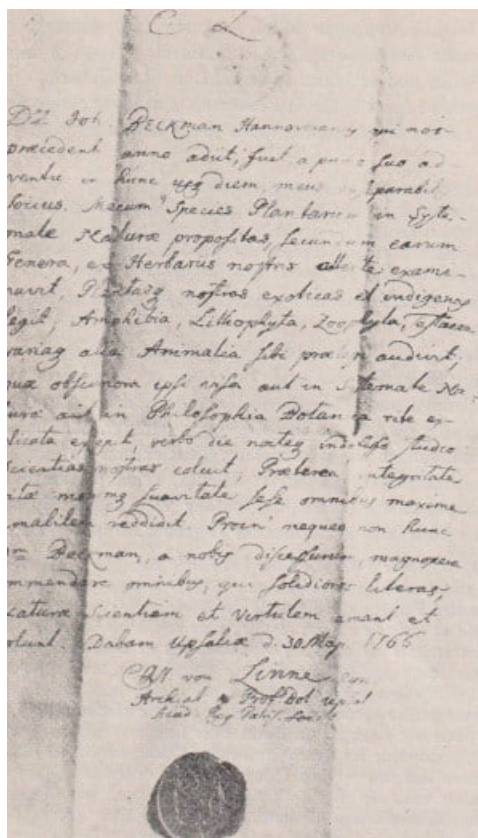 C L
Joh. BECKman Hannoveranus qui nos
præcedenti anno adiit, fuit a suo ad-
ventu in hunc usq diem, meus
Socius. Mecum Species Plantarum in Syste-
mate Naturæ propositas, secundum earum
Genera, Herbariis nostris exami-
navit, Plantasq nostras exoticas et indigenas
legit, Amphibia, Lithophyta,
variaq alia Animalia sibi audivit,
quæ obscuriora ipsi visa aut in Systemate Na-
turæ aut in Philosophia Botanica rite ex-
plicata verbo die nocteq indefesso studio
scientias nostras coluit, Præterea integritate
vitæ morumq suavitate sese omnibus maxime
amabilem reddidit. Proin nequeo non hunc
Beckman, a nobis discessurum, magnopere
commendare omnibus, qui solidiores literas,
naturæ scientiam et virtutem amant et
colunt. Dabam Upsaliæ d. 30 Maj. 1766
Car von Linne Equ
Archiat & Prof Bot Upsal
Acad